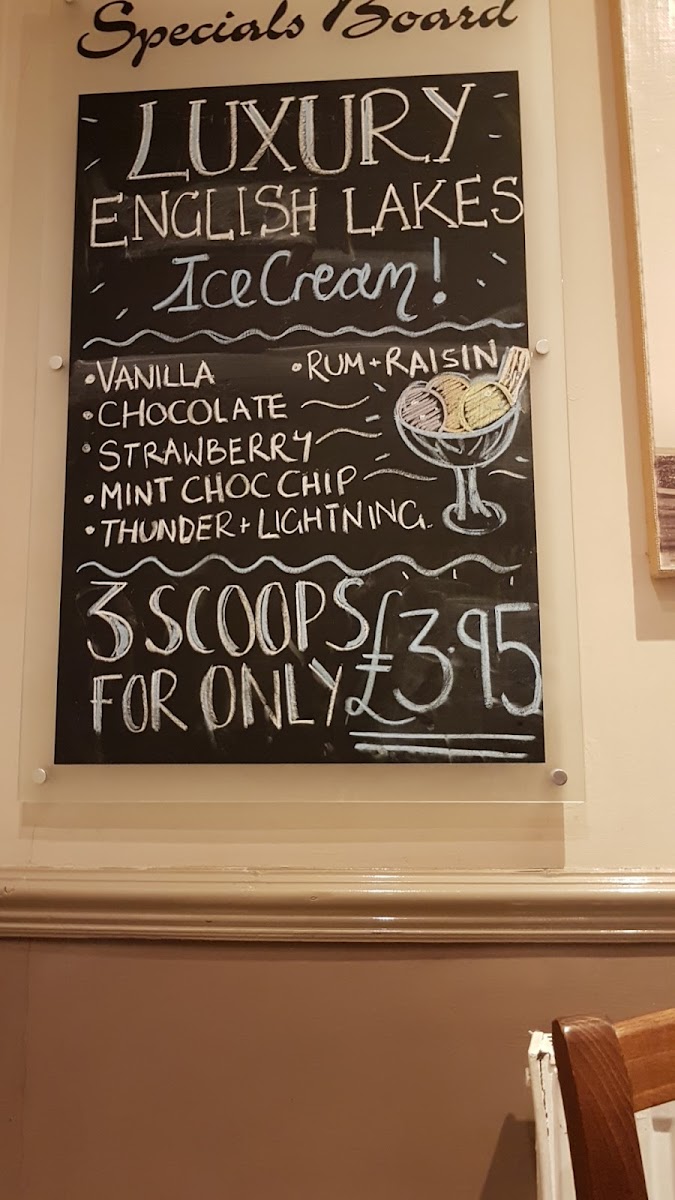 Specials Board
LUXURY
ENGLISH LAKES
Ice Cream!
•VANILLA •RUM+RAISIN
•CHOCOLATE
•STRAWBERRY
•MINT CHOC CHIP
•THUNDER+LIGHTNING
3 SCOOPS
FOR ONLY £3.95